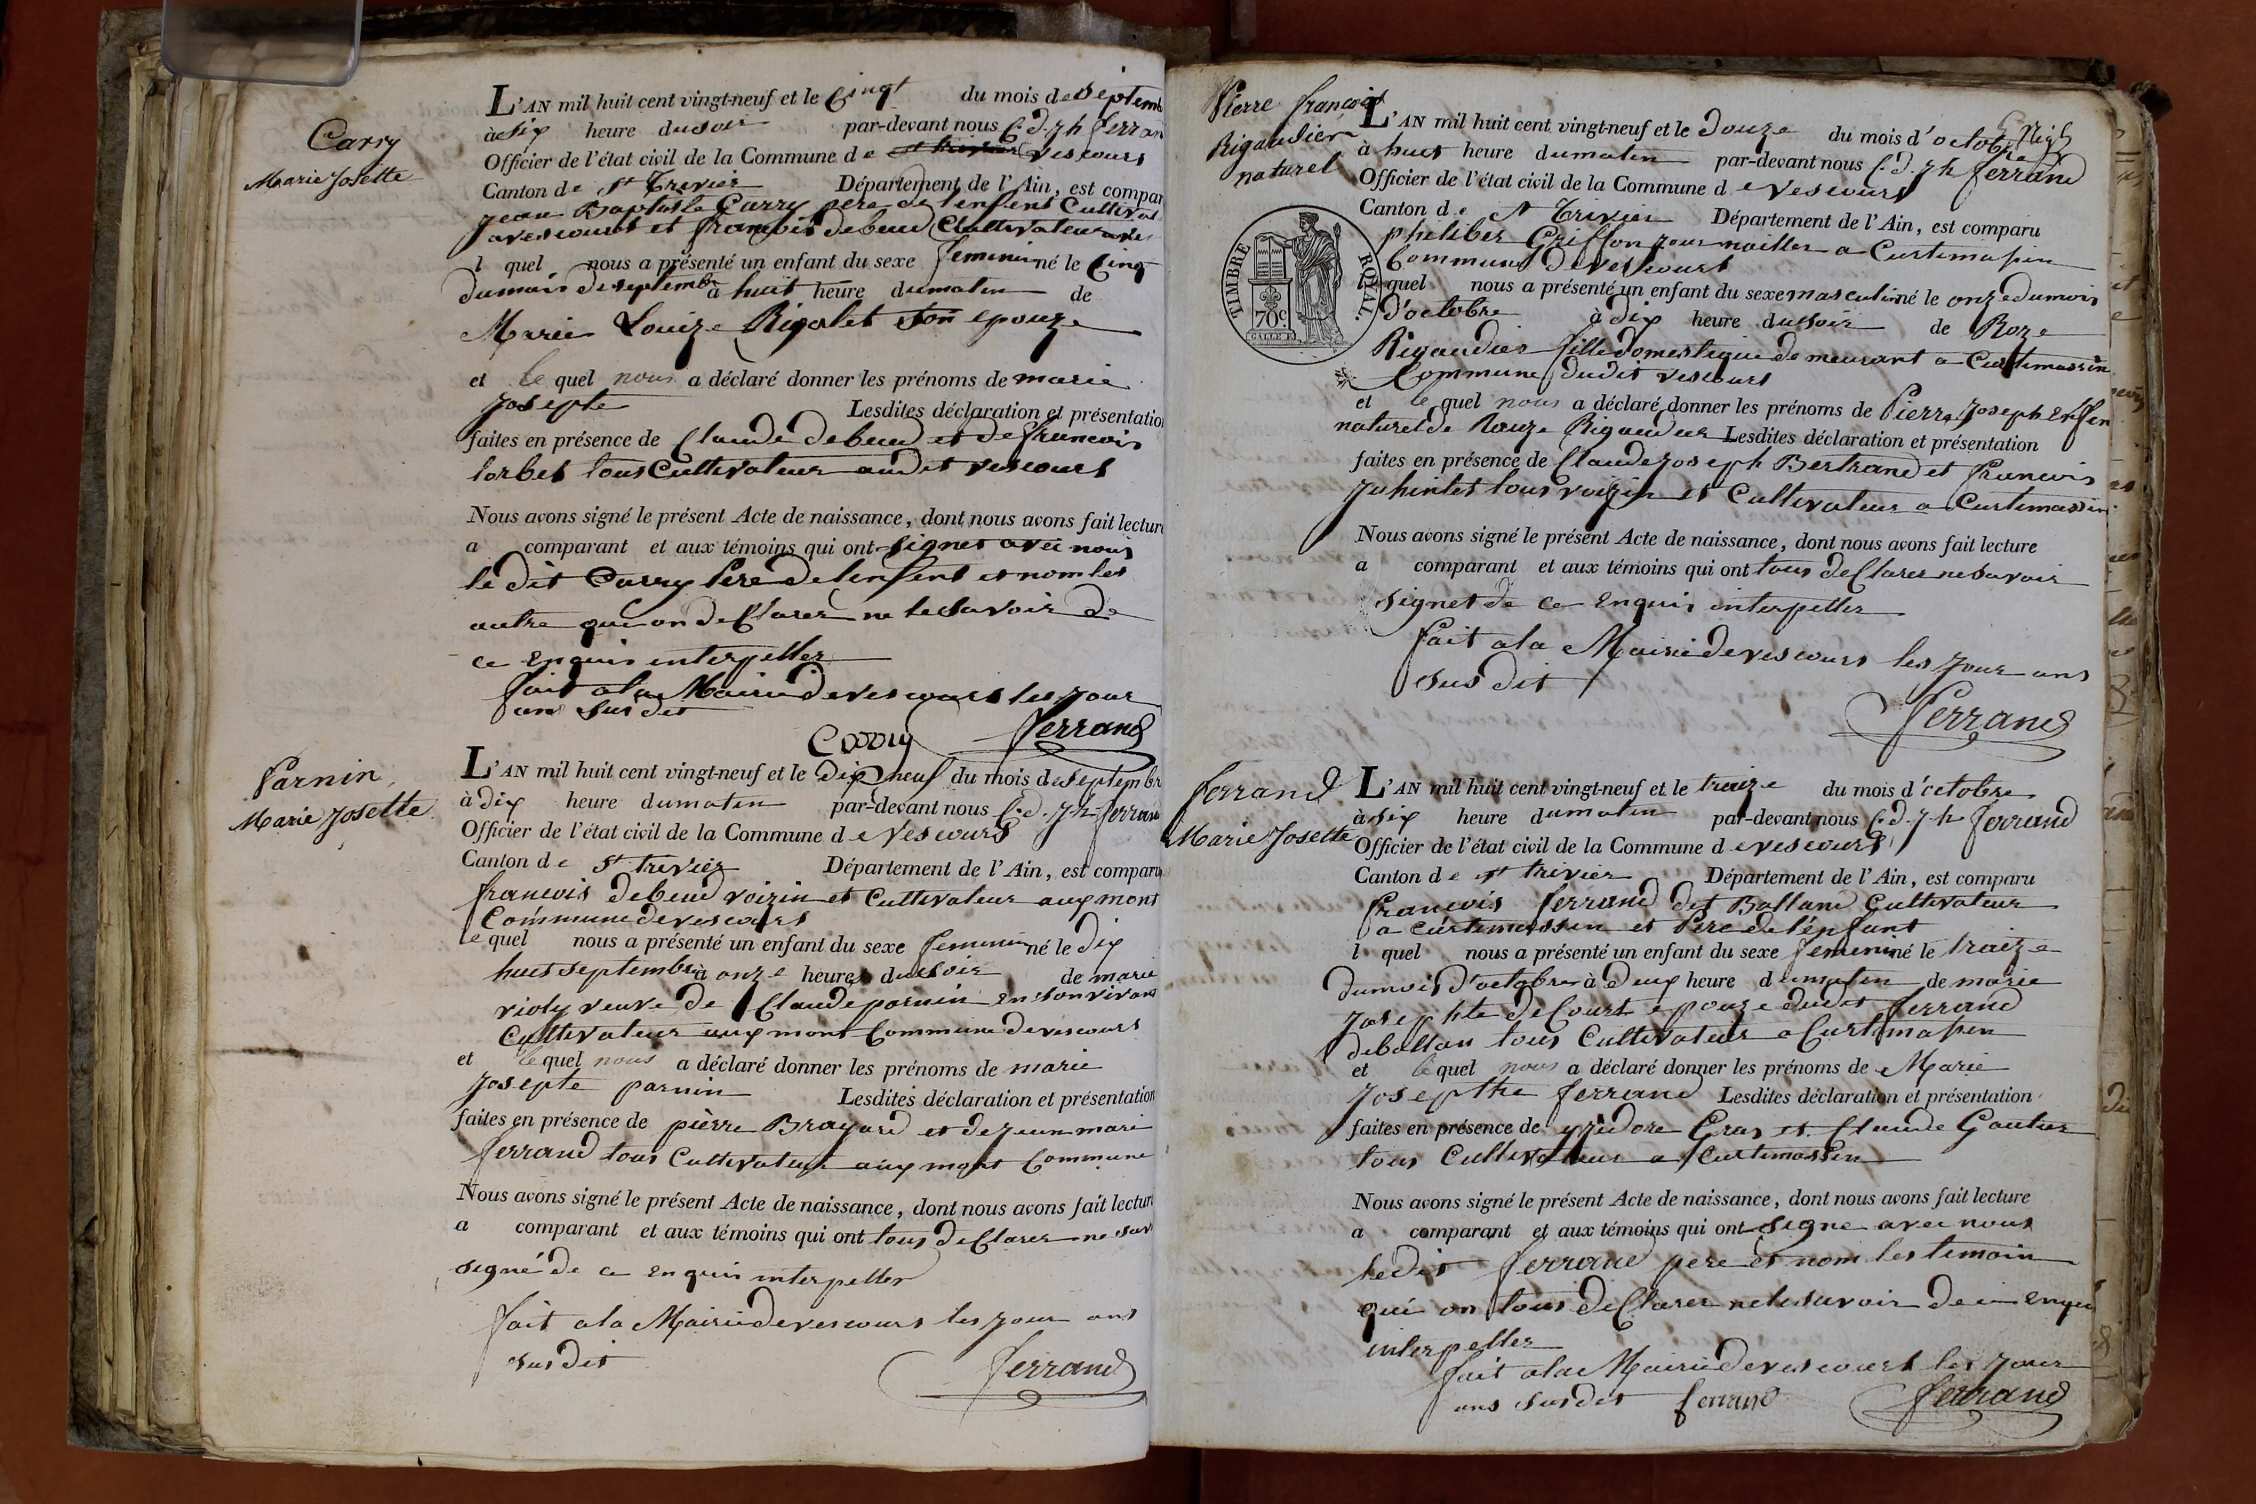 Carry
Marie Josette
L'AN mil huit cent vingt-neuf et le Cinqt du mois de septemb
à six heure du soir par-devant nous C. d. Jh ferran
Officier de l'état civil de la Commune de vescours
Canton de St Trivier Département de l'Ain, est compar
Jean Baptiste Carry pere de l'enfent Cultivat
a vescours et françois debeud Cultivateur
l quel nous a présenté un enfant du sexe feminin né le Cinq
du mois de septembr à huit heure du maten de
Marie Louize Rigolet son epouze
et le quel nous a déclaré donner les prénoms de marie
Josepte Lesdites déclaration et présentation
faites en présence de Claude debeud et de francois
lorbet tous Cultivateur audit vescours
Nous avons signé le présent Acte de naissance, dont nous avons fait lecture
a comparant et aux témoins qui ont signet avec nous
le dit Carry Pere de lenfent et nom les
autre qui on deClarer ne le savoir de
ce enquis interpeller
fait a la Mairie de vescours les Jour
an susdit
Carry ferrand
Parnin
Marie Josette
L'AN mil huit cent vingt-neuf et le dix neuf du mois de septembr
à dix heure du maten par-devant nous C. d. Jh ferrand
Officier de l'état civil de la Commune de vescours
Canton de St trivier Département de l'Ain, est comparu
francois debeud voizin et Cultivateur aux mont
Commune de vescours
le quel nous a présenté un enfant du sexe feminin né le dix
huit septembre à onze heures du soir de marie
violy veuve de Claude parnin en son vivant
Cultivateur aux mont Commune de vescours
et le quel nous a déclaré donner les prénoms de marie
Josepte parnin Lesdites déclaration et présentation
faites en présence de pierre Brayard et de Jean mari
ferrand tous Cultivateur aux mont Commune
Nous avons signé le présent Acte de naissance, dont nous avons fait lecture
a comparant et aux témoins qui ont tous deClarer ne sav
signé de ce enquis interpeller
fait a la Mairie de vescours les Jour ans
susdit
ferrand
Pierre françois
Rigaudier
naturel
L'AN mil huit cent vingt-neuf et le douze du mois d'octobre
à huit heure du maten par-devant nous C. d. Jh ferrand
Officier de l'état civil de la Commune de vescours
Canton de St Trivier Département de l'Ain, est comparu
pheliber Griffon Journallier a Curtimassin
Commune de vescours
TIMBRE ROYAL.
70c.
l quel nous a présenté un enfant du sexe masculin né le onze du mois
d'octobre à dix heure du soir de Roze
Rigaudier fille domestique demeurant a Curtimassin
Commune dudit vescours
et le quel nous a déclaré donner les prénoms de Pierre Joseph Enfen
naturel de Rouze Rigaudier Lesdites déclaration et présentation
faites en présence de Claude Joseph Bertrand et francois
tous voizin et Cultivateur a Curtimassin
Nous avons signé le présent Acte de naissance, dont nous avons fait lecture
a comparant et aux témoins qui ont tous deClarer ne savoir
signet de ce enquis interpeller
fait a la Mairie de vescours les Jour ans
susdit
ferrand
ferrand
Marie Josette
L'AN mil huit cent vingt-neuf et le traize du mois d'octobre
à six heure du maten par-devant nous C. d. Jh ferrand
Officier de l'état civil de la Commune de vescours
Canton de St trivier Département de l'Ain, est comparu
francois ferrand dit Balland Cultivateur
a Curtimassin et Pere de l'enfant
l quel nous a présenté un enfant du sexe feminin né le traize
du mois d'octobre à deux heure du maten de marie
Josephte deCourt epouze dudit ferrand
deballan tous Cultivateur a Curtimassin
et le quel nous a déclaré donner les prénoms de Marie
Josepthe ferrand Lesdites déclaration et présentation
faites en présence de yzidore Gras et Claude Gautier
tous Cultivateur a Curtimassin
Nous avons signé le présent Acte de naissance, dont nous avons fait lecture
a comparant et aux témoins qui ont signe avec nous
ledit ferrand pere et nom les temoin
qui on tous deClarer ne le savoir de ce enqui
interpeller
fait a la Mairie de vescours les Jour
ans susdit ferrand ferrand